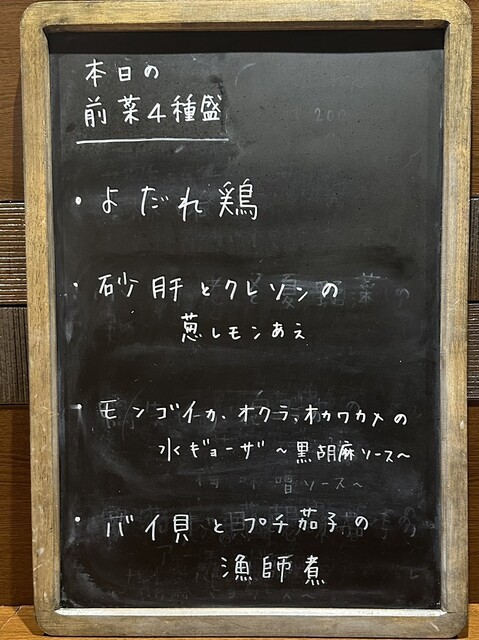 本日の
前菜4種盛
・よだれ鶏
・砂肝とクレソンの
葱レモンあえ
・モンゴイカ、オクラ、オカワカメの
水ギョーザ〜黒胡麻ソース〜
・バイ貝とプチ茄子の
漁師煮